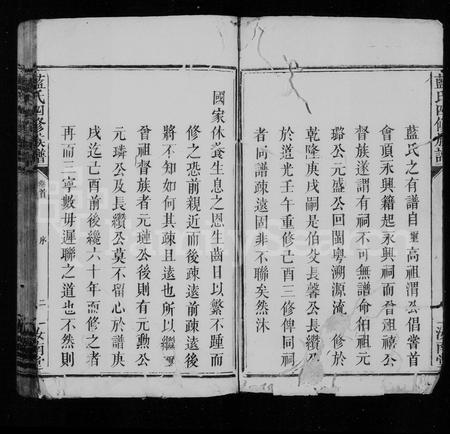 藍氏四修族譜
藍氏之有譜自 高祖渭公倡嘗首
會項永興籍起永興祠而曾祖禧公
督族遂謂有祠不可無譜命伯祖元
璐公元盛公回閩粵溯源流 修於
乾隆庚戌嗣是伯父長馨公長纘公
於道光壬午重修己酉三修俾同祠
者同譜疎遠固非不聯矣然沐
國家休養生息之恩生齒日以繁不踵而
修之恐前親近而後疎前疎遠後
將不知如何其疎且遠也所以繼
曾祖督族者元璉公後則有元勲公
元璘公及長纘公莫不留心於譜庚
戌迄己酉前後纔六十年而修之者
再而三寧數毋遲聯之道也不然則
藍氏四修族譜
卷首
序
二
汝南堂